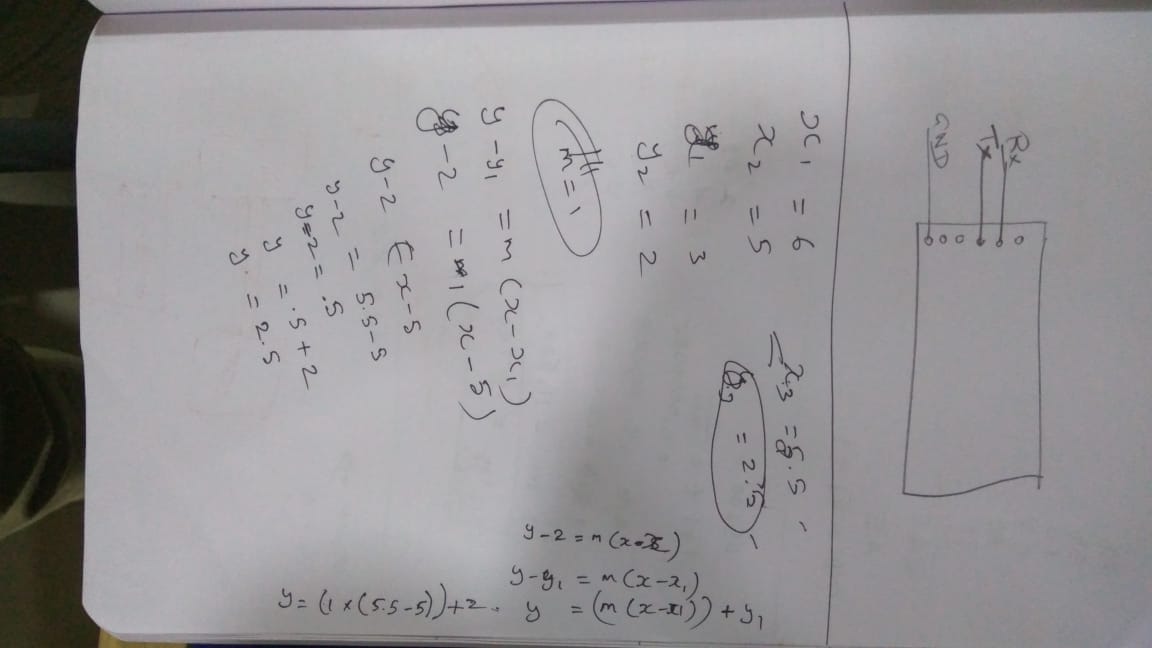 Rx
Tx
GND
x₁ = 6
x₂ = 5
y₁ = 3
y₂ = 2
x₃ = 5.5
= 2.5
m = 1
y - y₁ = m (x - x₁)
y - 2 = 1 (x - 5)
y - 2 = x - 5
y - 2 = 5.5 - 5
y - 2 = .5
y = .5 + 2
y = 2.5
y - 2 = m (x -
y - y₁ = m (x - x₁)
y = (m (x - x₁)) + y₁
y = (1 x (5.5 - 5)) + 2